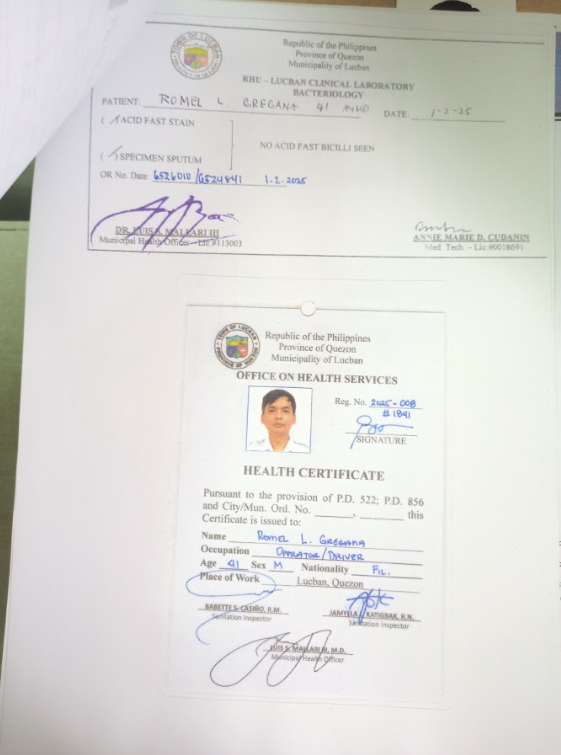 Republic of the Philippines
Province of Quezon
Municipality of Lucban
RHU – LUCBAN CLINICAL LABORATORY
BACTERIOLOGY
PATIENT: ROMEL L GREGANA 41 DATE: 1-2-25
( / ) ACID FAST STAIN
NO ACID FAST BICILLI SEEN
( / ) SPECIMEN SPUTUM
OR No. Date 6526010/6524841 1.2.2025
DR. LUIS S. MALLARI III
Municipal Health Officer – Lic #113003
ANNIE MARIE D. CUDANIN
Med Tech – Lic #0018691
TOWN OF LUCBAN
Republic of the Philippines
Province of Quezon
Municipality of Lucban
OFFICE ON HEALTH SERVICES
Reg. No. 2025-008
#1841
SIGNATURE
HEALTH CERTIFICATE
Pursuant to the provision of P.D. 522; P.D. 856
and City/Mun. Ord. No. ______, ______ this
Certificate is issued to:
Name ROMEL L. GREGANA
Occupation OPRATOR/DRIVER
Age 41 Sex M Nationality FIL.
Place of Work Lucban, Quezon
BABETTE S. CASIÑO, R.M.
Sanitation Inspector
KATIGBAK, R.N.
Sanitation Inspector
LUIS S. MALLARI III, M.D.
Municipal Health Officer